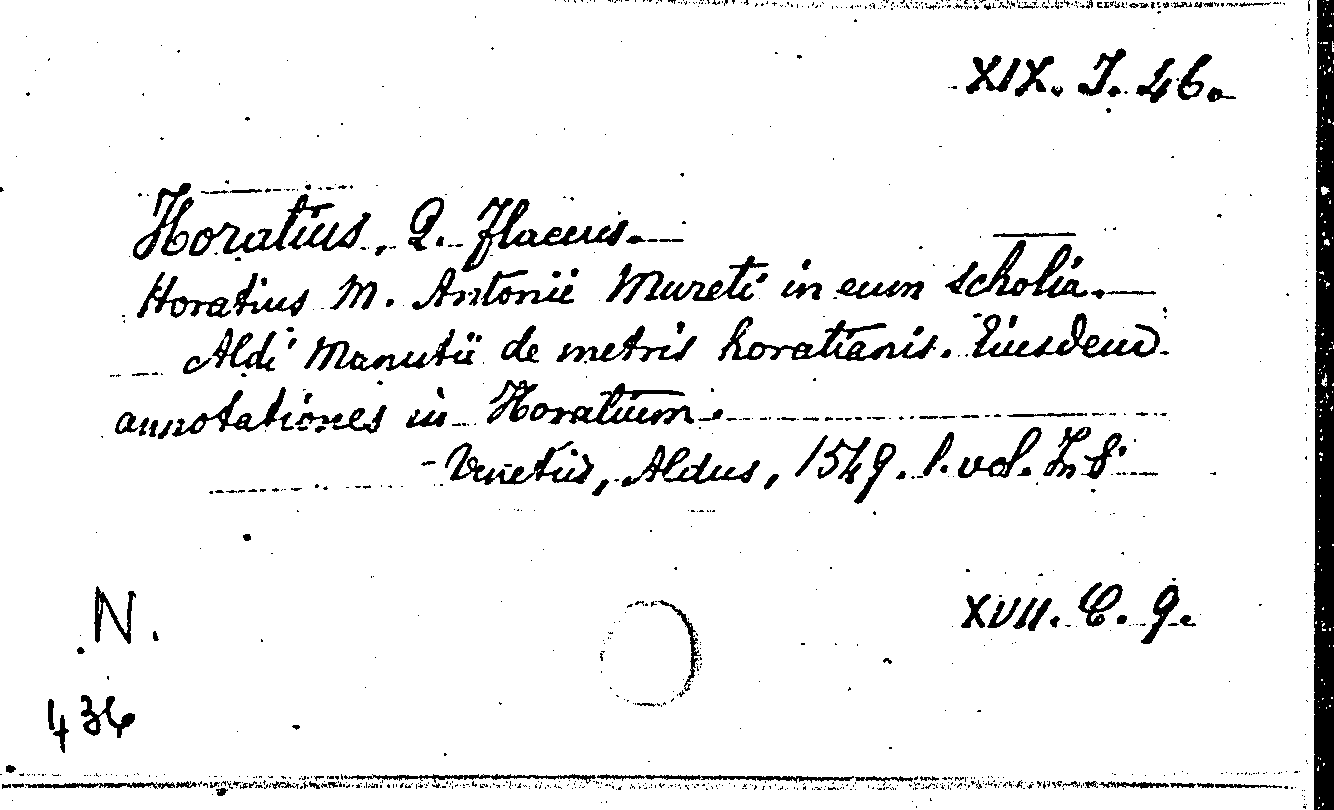 XIX. J. 46.
Horatius, Q. Flaccus.
Horatius M. Antonii Mureti in eum scholia.
Aldi Manutii de metris horatianis. Eiusdem
annotationes in Horatium.
Venetiis, Aldus, 1549. 1. vol. 8°
XVII. C. 9.
N.
436